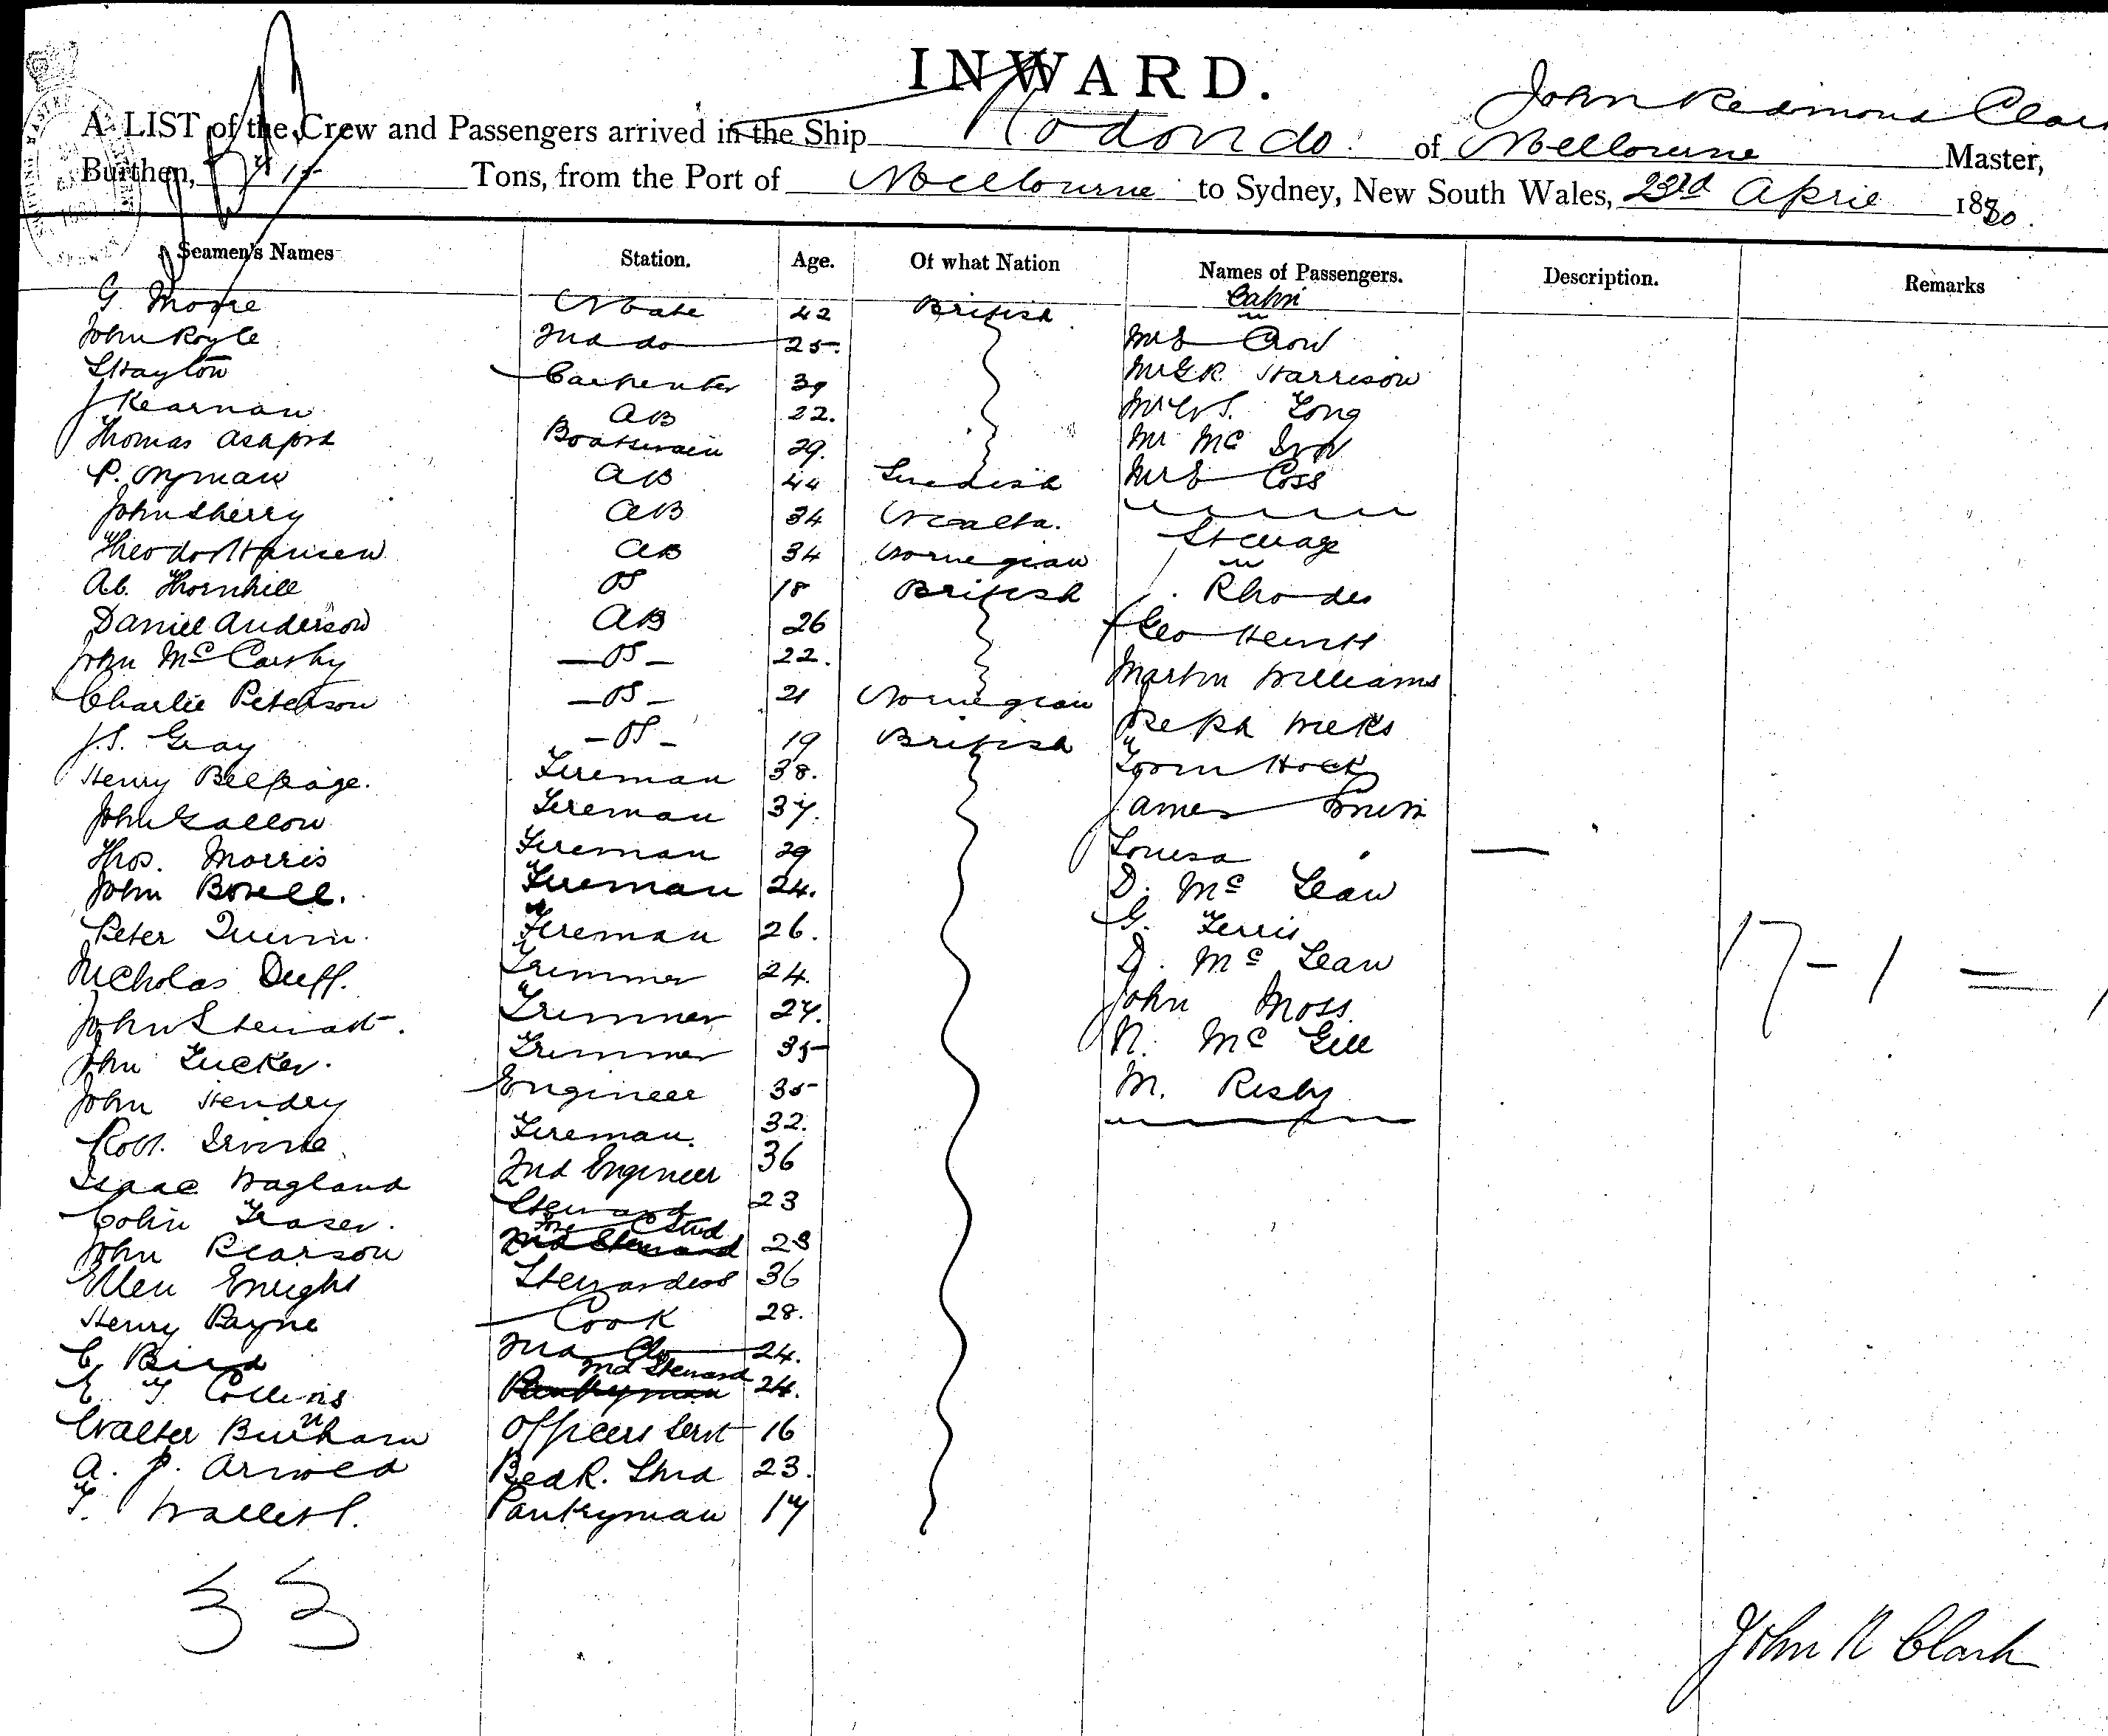 INWARD.
John Redmond
A LIST of the Crew and Passengers arrived in the Ship Rodondo of Melbourne Master,
Burthen, Tons, from the Port of Melbourne to Sydney, New South Wales, 23rd April 1880.
Seamen's Names Station. Age. Of what Nation Names of Passengers. Description. Remarks
Cabin
G. Moore Mate 42 British
John Royle 2nd do 25. Mrs Crow
Hayton Carpenter 39 Mr G R. Harrison
J Kearnan AB 22. Mr W S. Long
Thomas Ashford Boatswain 29. Mr Mc
P. Nyman AB 44 Swedish Mrs Coss
John Sherry AB 34 Malta.
Theodor Hansen AB 34 Norwegian Steerage
Ab. Thornhill OS 18 British Rhodes
Daniel Anderson AB 26 Geo Hewitt
John McCarthy OS 22. Martin Williams
Charlie Peterson OS 21 Norwegian Weeks
J.S. Gray OS 19 British Hock
Henry Belfrage. Fireman 38. James
John Gallow Fireman 37. Louisa
Thos. Morris Fireman 29 D. McLean
John Bovell. Fireman 24. G. Ferris
Peter Quinn. Fireman 26. D. McLean
17 - 1 =
Nicholas Duff. Trimmer 24. John Moss
John Stewart. Trimmer 27. N. McGill
John Tucker. Trimmer 35 M. Risby
John Hendry Engineer 35
Robt. Irvine Fireman. 32.
Isaac Wagland 2nd Engineer 36
Colin Fraser. Steward 23
John Pearson Fore C Stwd 23
Ellen Enright Stewardess 36
Henry Payne Cook 28.
C Bird 2nd do 24.
E. T Collins 2nd Steward 24.
Walter Burnham Officers Servt 16
A. P. Arnold Bed R. Stwd 23.
T. Wallest. Pantryman 17
33
John R Clark